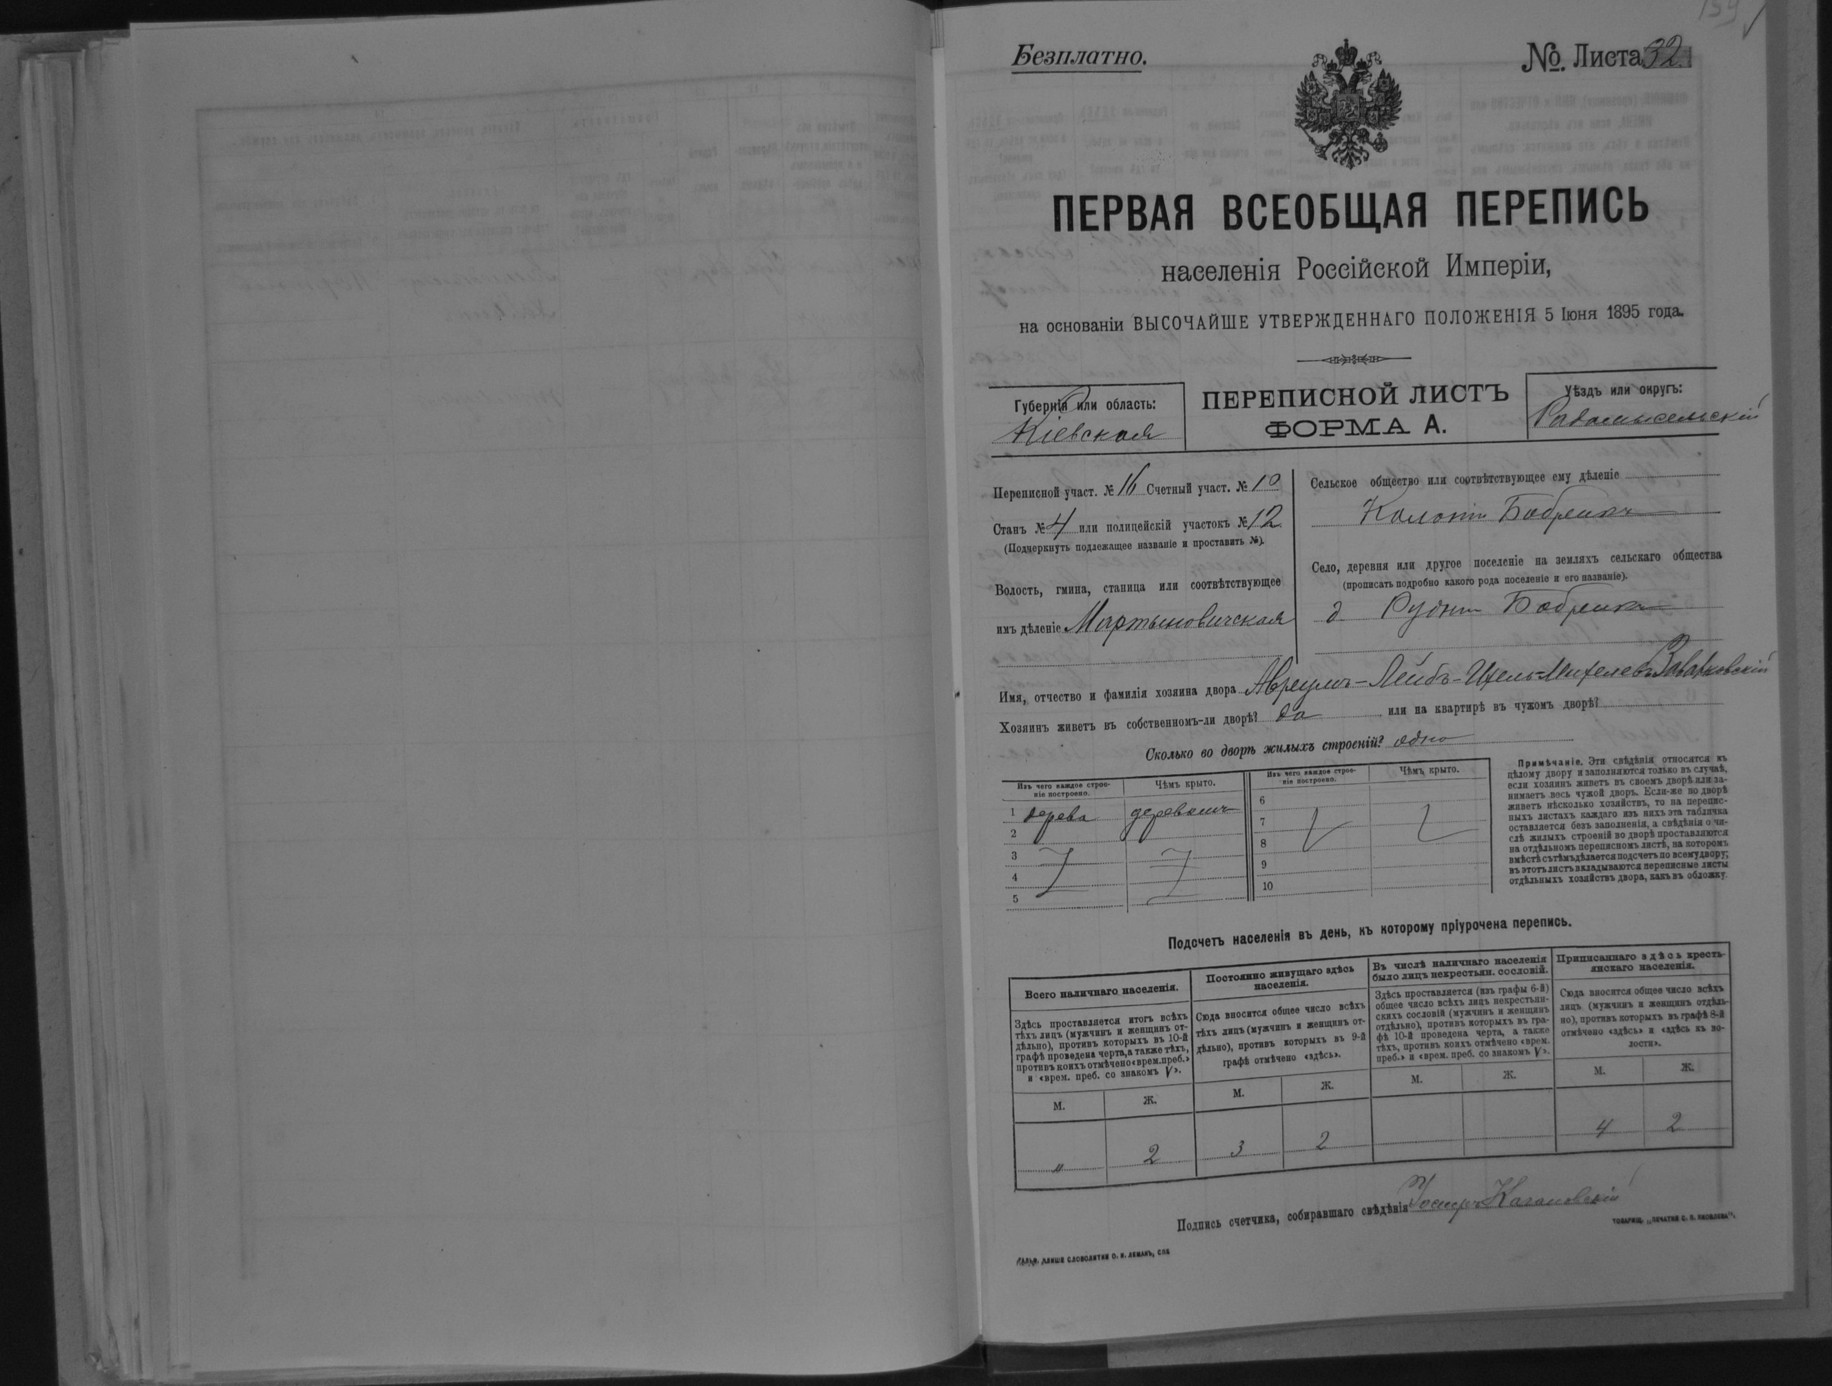 159
Безплатно.
№ Листа 32
ПЕРВАЯ ВСЕОБЩАЯ ПЕРЕПИСЬ
населенія Россійской Имперіи,
на основаніи ВЫСОЧАЙШЕ УТВЕРЖДЕННАГО ПОЛОЖЕНІЯ 5 Іюня 1895 года.
Губернія или область:
Кіевская
ПЕРЕПИСНОЙ ЛИСТЪ
ФОРМА А.
Уѣздъ или округъ:
Радомысельскій
Переписной участ. № 16 Счетный участ. № 10
Станъ № 4 или полицейскій участокъ № 12
(Подчеркнуть подлежащее названіе и проставить №).
Волость, гмина, станица или соотвѣтствующее
имъ дѣленіе Мартыновичская
Сельское общество или соотвѣтствующее ему дѣленіе
Село, деревня или другое поселеніе на земляхъ сельскаго общества
(прописать подробно какого рода поселеніе и его названіе).
д
Имя, отчество и фамилія хозяина двора Авреумъ-Лейбъ-
Хозяинъ живетъ въ собственномъ-ли дворѣ? да или на квартирѣ въ чужомъ дворѣ?
Сколько во дворѣ жилыхъ строеній? одно
Изъ чего каждое строе-
ніе построено.
Чѣмъ крыто.
1 дерева
2
3
4
5
Изъ чего каждое строе-
ніе построено.
Чѣмъ крыто.
6
7
8
9
10
Примѣчаніе. Эти свѣдѣнія относятся къ
цѣлому двору и заполняются только въ случаѣ,
если хозяинъ живетъ въ своемъ дворѣ или за-
нимаетъ весь чужой дворъ. Если-же во дворѣ
живетъ нѣсколько хозяйствъ, то на перепис-
ныхъ листахъ каждаго изъ нихъ эта табличка
оставляется безъ заполненія, а свѣдѣнія о чи-
слѣ жилыхъ строеній во дворѣ проставляются
на отдѣльномъ переписномъ листѣ, на которомъ
вмѣстѣ съ тѣмъ дѣлается подсчетъ по всему двору;
въ этотъ листъ вкладываются переписные листы
отдѣльныхъ хозяйствъ двора, какъ въ обложку.
Подсчетъ населенія въ день, къ которому пріурочена перепись.
Всего наличнаго населенія.
Здѣсь проставляется итогъ всѣхъ
тѣхъ лицъ (мужчинъ и женщинъ от-
дѣльно), противъ которыхъ въ 10-й
графѣ проведена черта, а также тѣхъ,
противъ коихъ отмѣчено «врем. преб.»
и «врем. преб. со знакомъ V».
М. Ж.
„ 2
Постоянно живущаго здѣсь
населенія.
Сюда вносится общее число всѣхъ
тѣхъ лицъ (мужчинъ и женщинъ от-
дѣльно), противъ которыхъ въ 9-й
графѣ отмѣчено «здѣсь».
М. Ж.
3 2
Въ числѣ наличнаго населенія
было лицъ некрестьян. сословій.
Здѣсь проставляется (изъ графы 6-й)
общее число всѣхъ лицъ некрестьян-
скихъ сословій (мужчинъ и женщинъ
отдѣльно), противъ которыхъ въ гра-
фѣ 10-й проведена черта, а также
тѣхъ, противъ коихъ отмѣчено «врем.
преб.» и «врем. преб. со знакомъ V».
М. Ж.
Приписаннаго здѣсь кресть-
янскаго населенія.
Сюда вносится общее число всѣхъ
лицъ (мужчинъ и женщинъ отдѣль-
но), противъ которыхъ въ графѣ 8-й
отмѣчено «здѣсь» и «здѣсь въ во-
лости».
М. Ж.
4 2
Подпись счетчика, собиравшаго свѣдѣнія
КЛИШЕ СЛОВОЛИТНИ О. И. ЛЕМАНЪ, СПБ
ТОВАРИЩ. „ПЕЧАТНЯ С. П. ЯКОВЛЕВА".